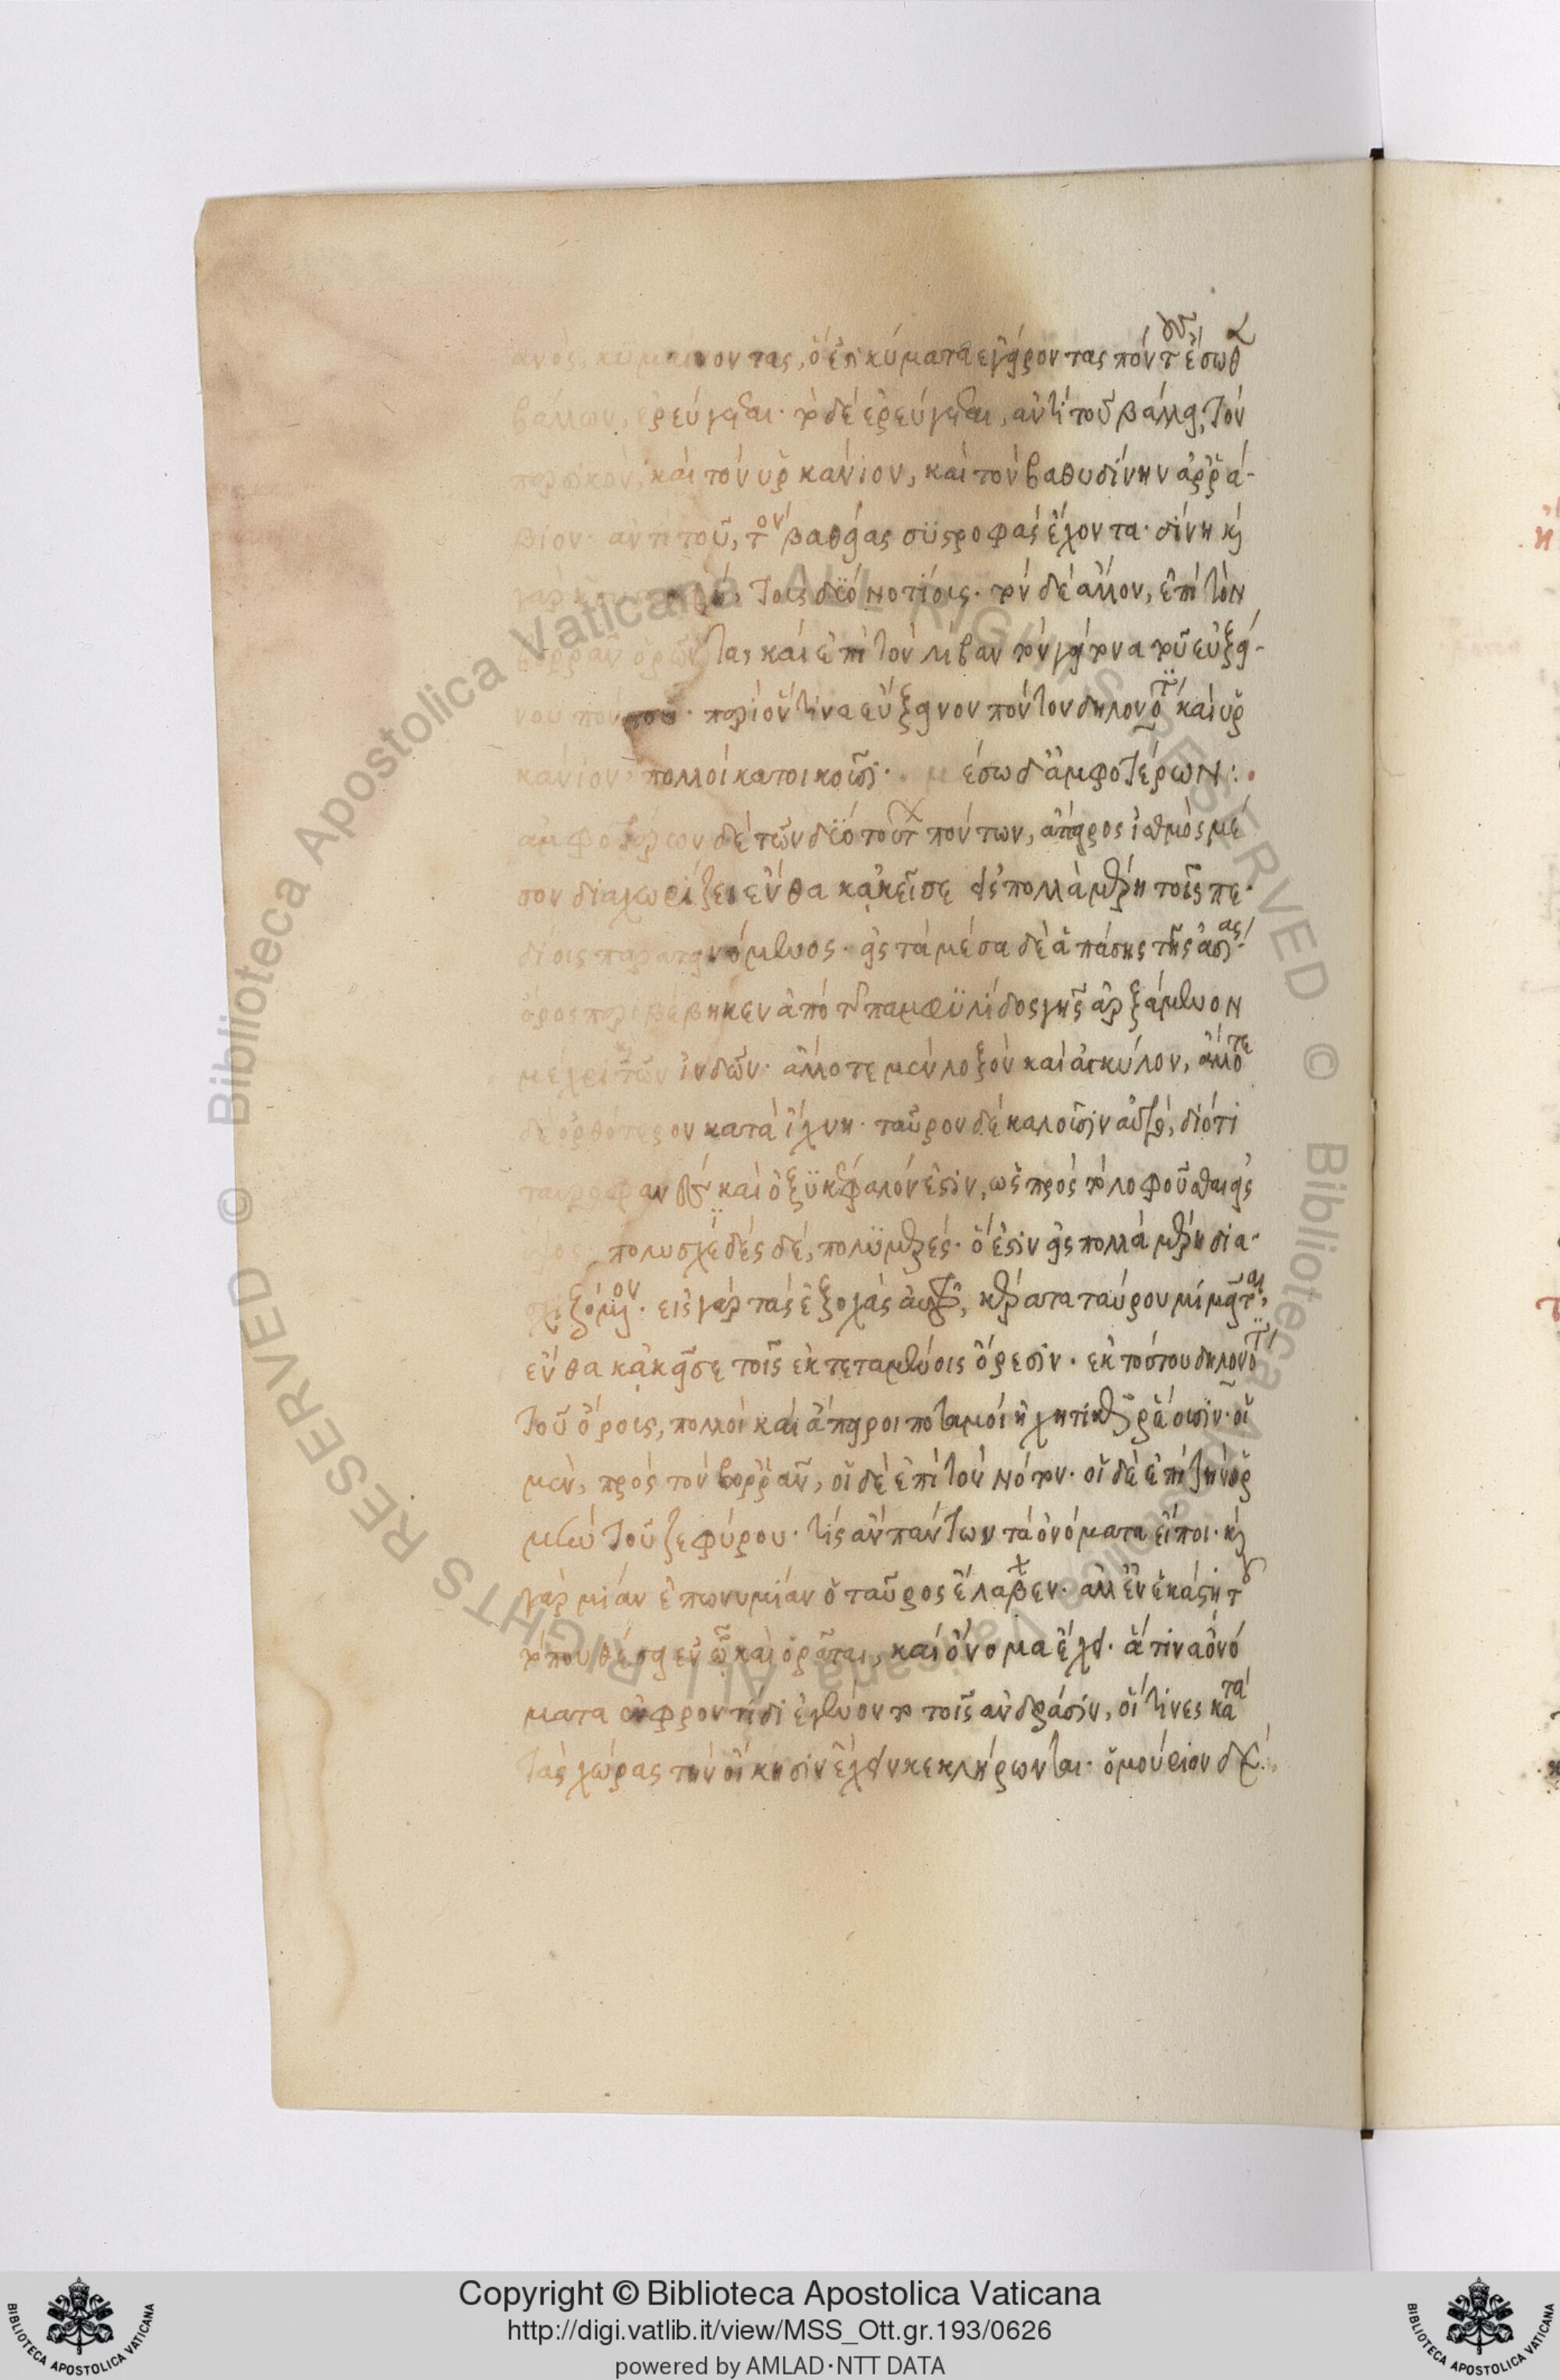 κυμαίνοντας, ὅ ἐστι κύματα ἐγείροντας πόντους ἔσωθεν
βάλλων, ἐρεύγεται· τὸ δὲ ἐρεύγεται, ἀντὶ τοῦ βάλλει, τὸν
καὶ τὸν ὑρκάνιον, καὶ τὸν βαθυδίνην ἀρρά-
βιον· ἀντὶ τοῦ, τὸν βαθείας συστροφὰς ἔχοντα· δίνη καὶ
γὰρ τοὺς δύο νοτίους· τὸν δὲ ἄλλον, ἐπὶ τὸν
βορρᾶν ὁρῶντα, καὶ ἐπὶ τὸν λίβαν τὸν γείτονα τοῦ εὐξεί-
νου πόντου· περὶ ὅντινα εὔξεινον πόντον δηλονότι καὶ ὑρ
κάνιον πολλοὶ κατοικοῦσι· μέσω δ' ἀμφοτέρων:·
ἀμφοτέρων δὲ τῶν δύο τούτων πόντων, ἄπειρος ἰσθμὸς μέ
σον διαχωρίζει ἔνθα κἀκεῖσε εἰς πολλὰ μέρη τοῖς πε-
δίοις παρατεινόμενος· εἰς τὰ μέσα δὲ ἁπάσης τῆς ἀσίας
ὄρος περιβέβηκεν ἀπὸ τῆς παμφυλίδος γῆς ἀρξάμενον
μέχρι τῶν ἰνδῶν· ἄλλοτε μὲν λοξὸν καὶ ἀγκύλον, ἄλλοτε
δὲ ὀρθότερον κατὰ ἴχνη· ταῦρον δὲ καλοῦσιν αὐτό, διότι
ταυροφανὲς καὶ ὀξυκέφαλόν ἐστιν, ὡς πρὸς τὸ λοφοῦσθαι εἰς
πολυσχεδὲς δέ, πολυμερές· ὅ ἐστιν εἰς πολλὰ μέρη δια-
σχιζόμενον· εἰς γὰρ τὰς ἐξοχὰς αὐτοῦ, κέρατα ταύρου μιμεῖται,
ἔνθα κἀκεῖσε τοῖς ἐκτεταμένοις ὄρεσιν· ἐκ τούτου δηλονότι
τοῦ ὄρους, πολλοὶ καὶ ἄπειροι ποταμοὶ ἠχητικῶς ῥέουσιν· οἱ
μὲν, πρὸς τὸν βορρᾶν, οἱ δὲ ἐπὶ τὸν νότον· οἱ δὲ ἐπὶ τὴν ὁρ
μὴν τοῦ ζεφύρου· τίς ἂν πάντων τὰ ὀνόματα εἴποι· καὶ
γὰρ μίαν ἐπωνυμίαν ὁ ταῦρος ἔλαβεν· ἀλλ' ἐν ἑκάστῃ τοῦ
τόπου θέσει ἐν ᾧ καὶ ὁρᾶται, καὶ ὄνομα ἔχει· ἅτινα ὀνό
ματα ἐν φροντίδι ἐγένοντο τοῖς ἀνδράσιν, οἵτινες κατὰ
τὰς χώρας τὴν οἴκησιν ἔχειν κεκλήρωνται· ὁμούριον δὲ
Copyright © Biblioteca Apostolica Vaticana
http://digi.vatlib.it/view/MSS_Ott.gr.193/0626
powered by AMLAD·NTT DATA